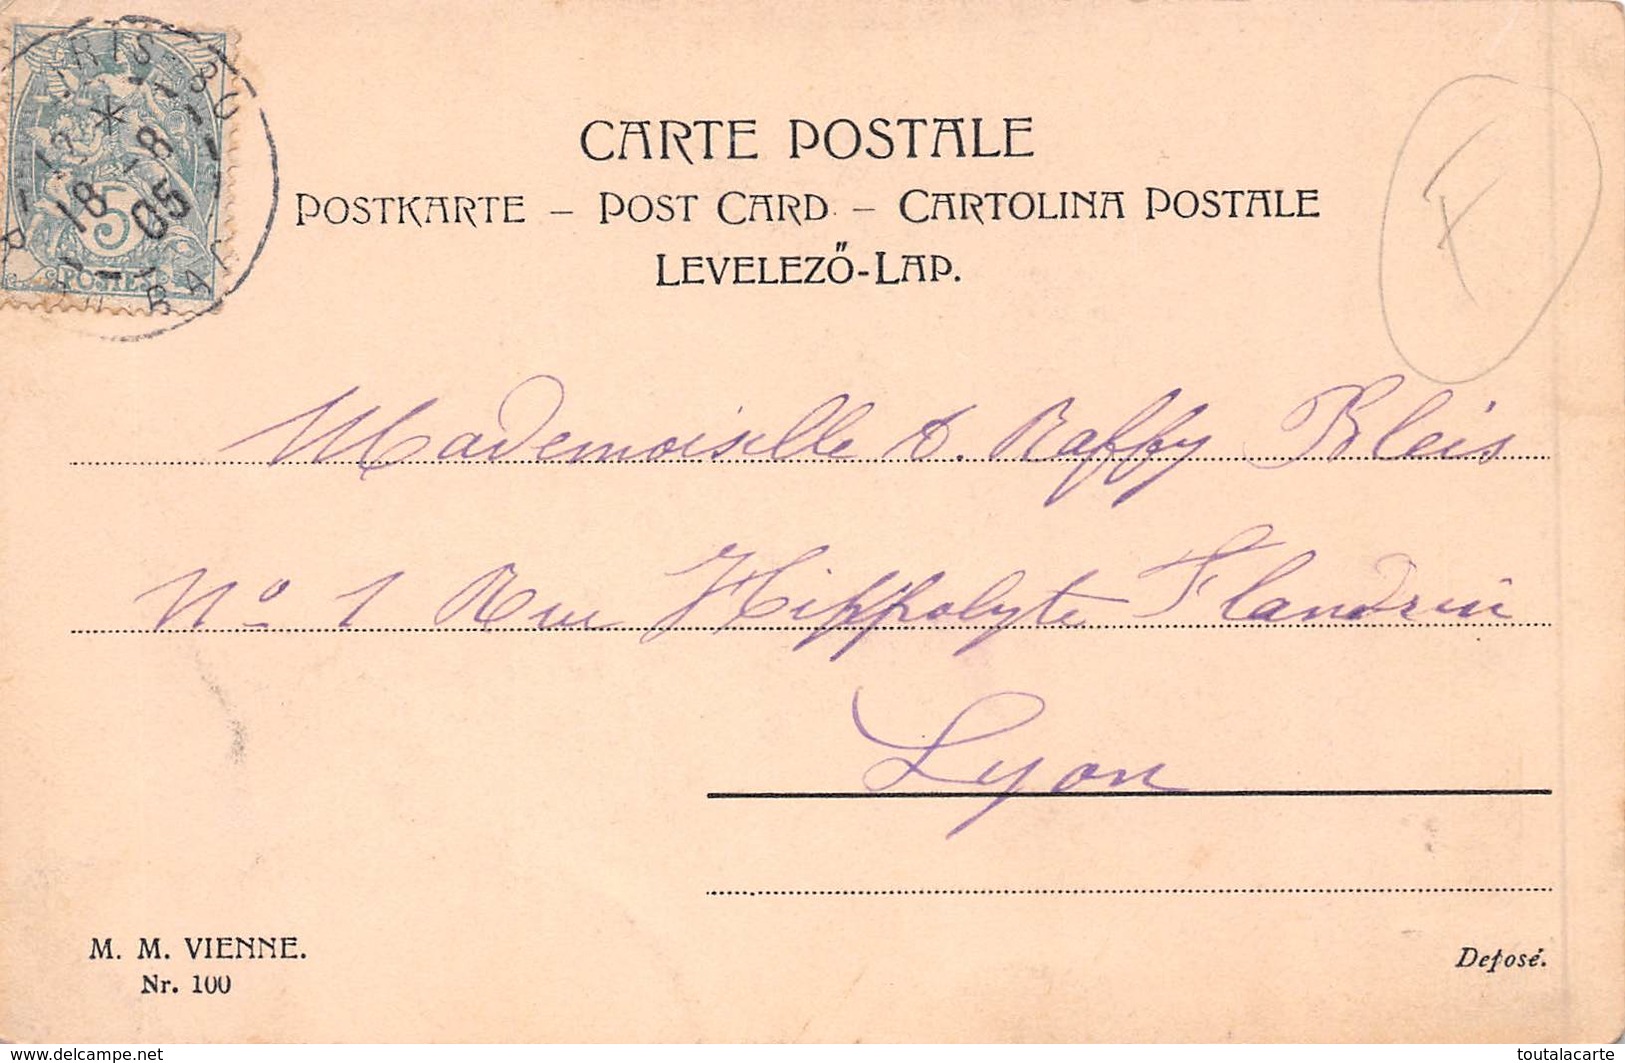 CARTE POSTALE
POSTKARTE – POST CARD – CARTOLINA POSTALE
LEVELEZŐ-LAP.
12 *
18 -8
05
5
POSTES
Mademoiselle A. Raffy Bleis
No 1 Rue Hippolyte Flandrin
Lyon
M. M. VIENNE.
Nr. 100
Deposé.
www.delcampe.net
toutalacarte